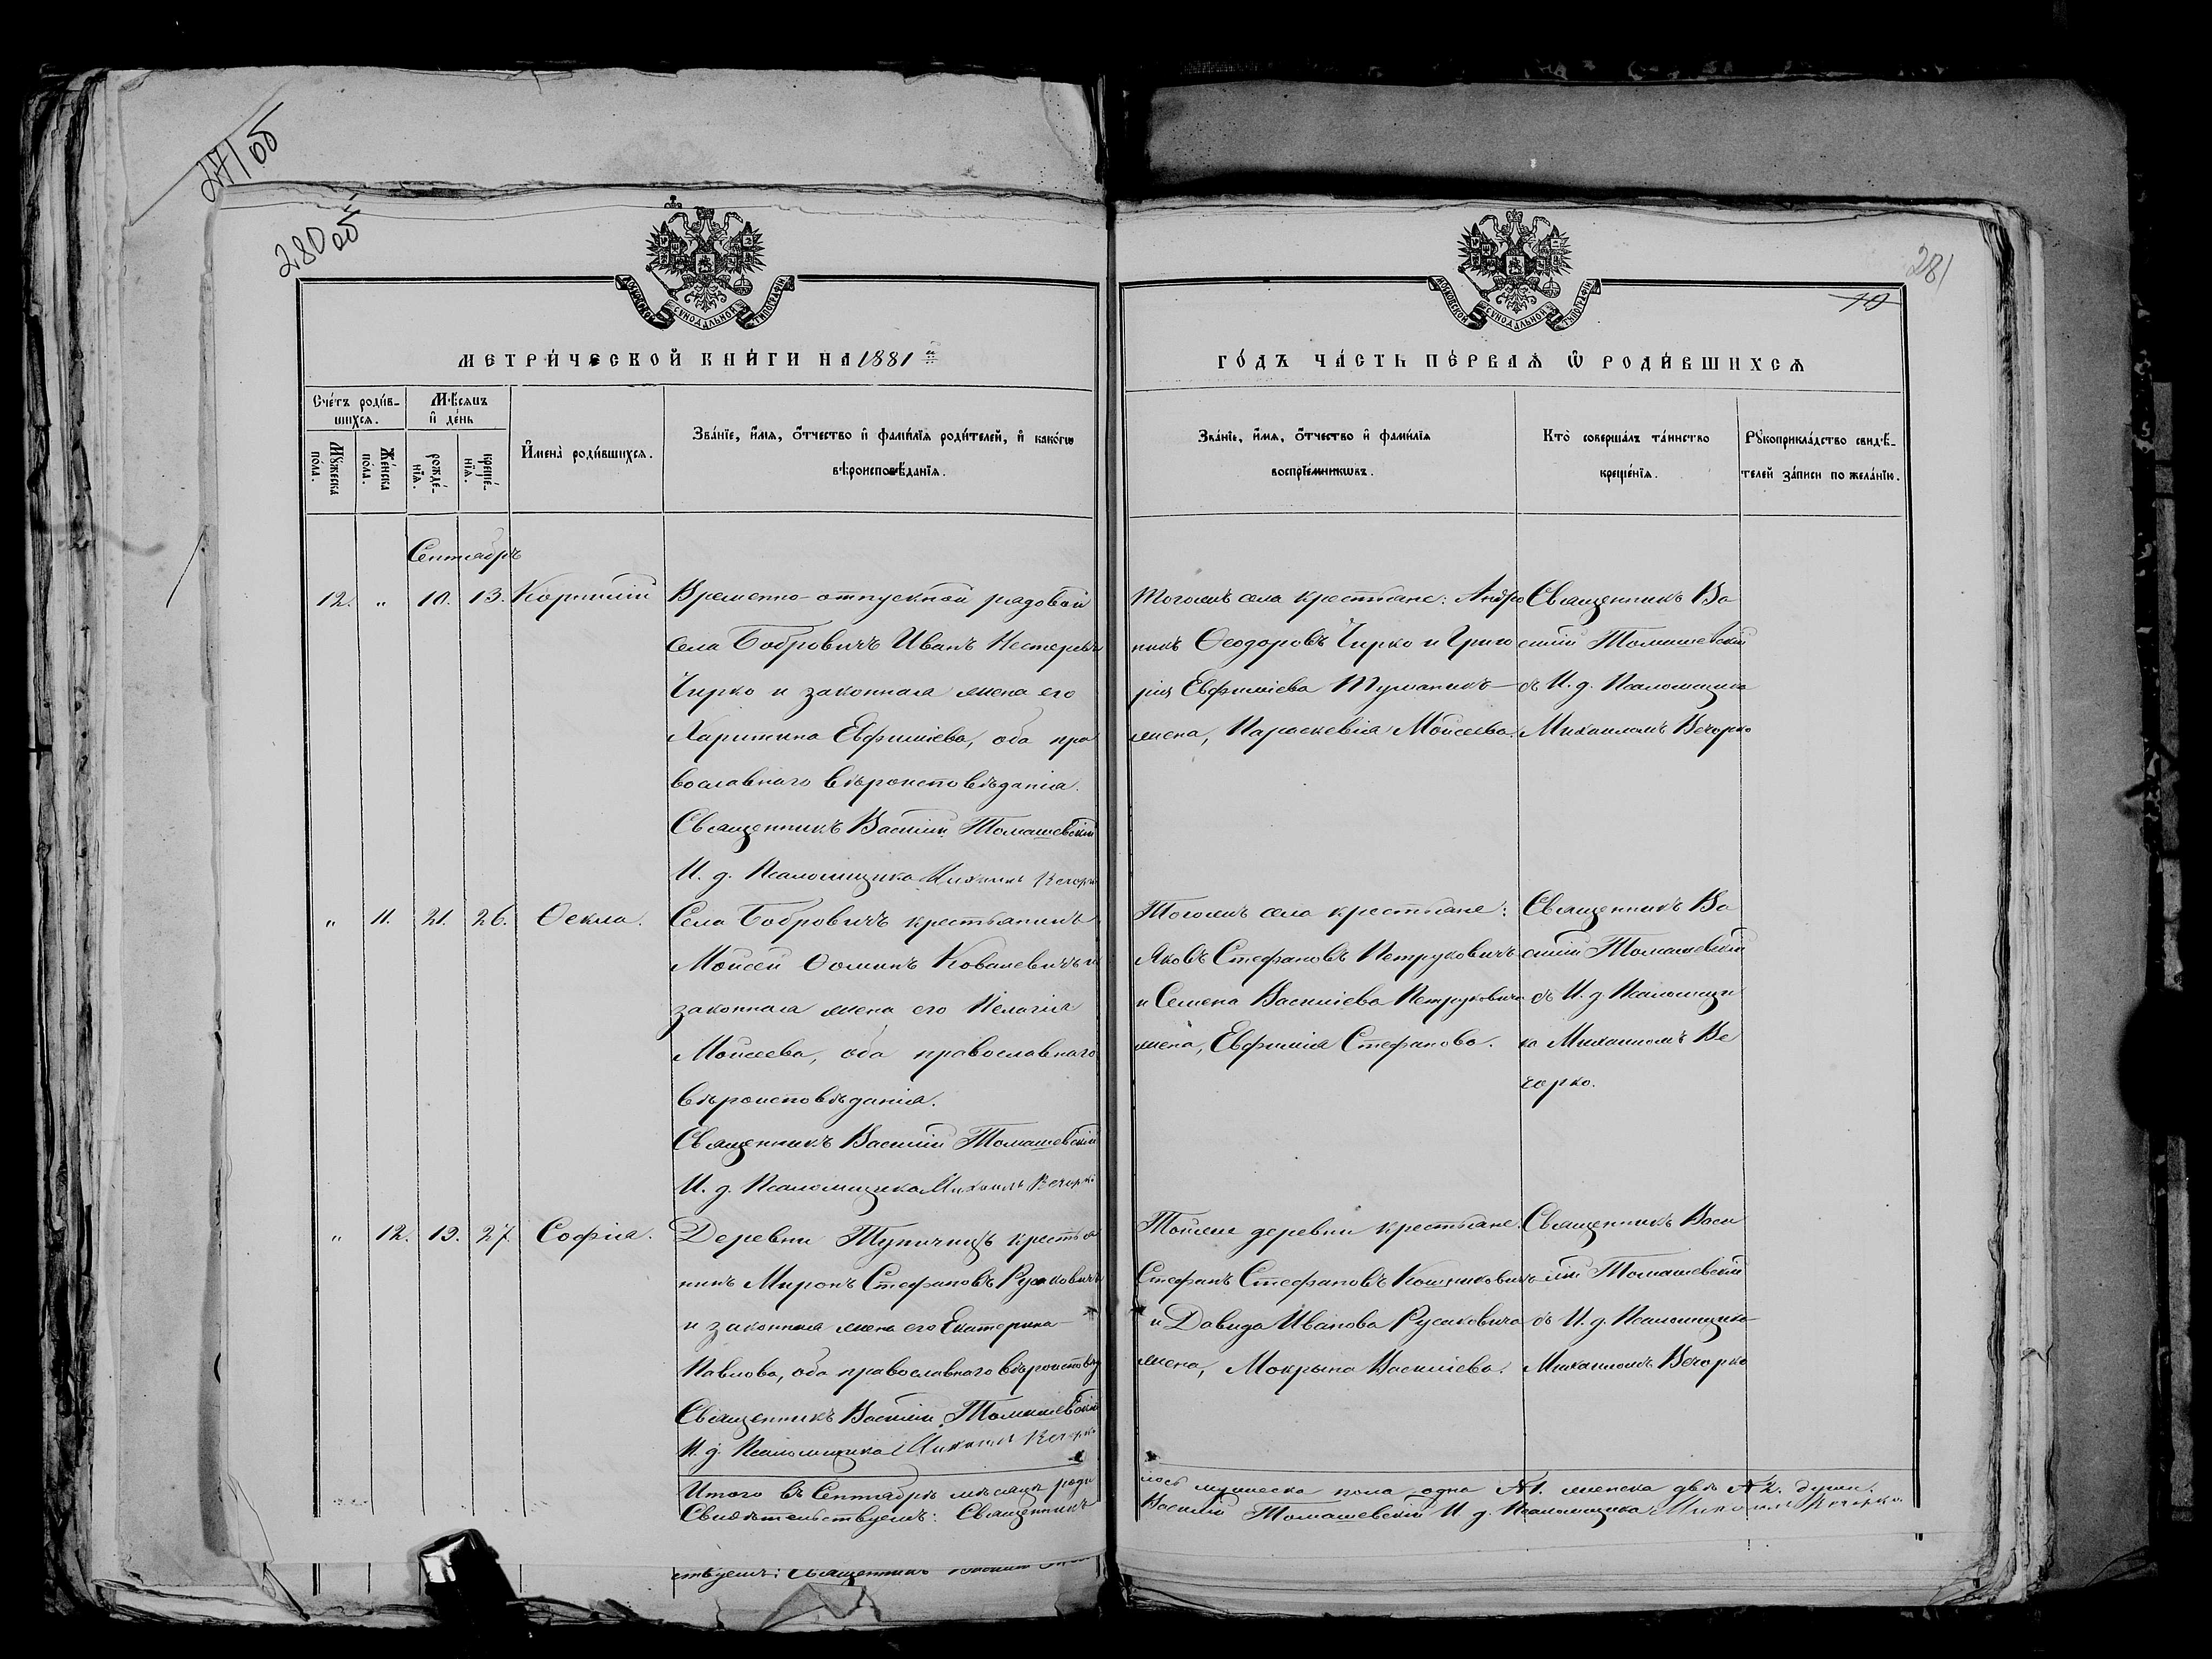 271 об
280 об
281
10
МОСКОВСКОЙ СѴНОДАЛЬНОЙ ТИПОГРАФІИ
МОСКОВСКОЙ СѴНОДАЛЬНОЙ ТИПОГРАФІИ
МЕТРИ́ЧЕСКОЙ КНИ́ГИ НА 1881й
ГО́ДЪ ЧА́СТЬ ПЕ́РВАѦ Ѿ РОДИ́ВШИХСѦ
Сче́тъ роди́в-
шихсѧ.
Мѣсѧцъ
и҆ де́нь
Мꙋ́жеска по́ла.
Же́нска по́ла.
рожде́-нїѧ.
креще́-нїѧ.
И҆мена̀ роди́вшихсѧ.
Зва́нїе, и҆́мѧ, ѻ҆́тчество и҆ фами́лїѧ роди́телей, и҆ како́гѡ
вѣроисповѣ́данїѧ.
Зва́нїе, и҆́мѧ, ѻ҆́тчество и҆ фами́лїѧ
воспрїе́мникѡвъ.
Кто̀ соверша́лъ та́инство
креще́нїѧ.
Рꙋкоприкла́дство свидѣ́-
телей за́писи по жела́нїю.
Сентябрь
12. " 10. 13. Корнилій
Временно-отпускной рядовой
села Бобровичъ Иванъ Нестеровъ
Чирко и законная жена его
Харитина Евфиміева, оба пра
вославнаго вѣроисповѣданія.
Священникъ Василій Томашевскій
И. д. Псаломщика Михаилъ Вечорко
Тогожъ села крестьяне: Андро
никъ Ѳеодоровъ Чирко и Григо
рія Евфиміева Туманикъ
жена, Параскевія Моисеева.
Священникъ Ва
силій Томашевскій
съ И. д. Псаломщика
Михаиломъ Вечорко
" 11. 21. 26. Ѳекла.
Села Бобровичъ крестьянинъ
Моисей Ѳоминъ Ковалевичъ и
законная жена его Пелагія
Моисеева, оба православнаго
вѣроисповѣданія.
Священникъ Василій Томашевскій
И. д. Псаломщика Михаилъ Вечорко
Тогожъ села крестьяне:
Яковъ Стефановъ Петруковичъ
и Семена Василіева Петруковича
жена, Евфимія Стефанова.
Священникъ Ва
силій Томашевскій
съ И. д. Псаломщи
ка Михаиломъ Ве
чорко.
" 12. 19. 27. Софія.
Деревни Тупичицъ крестья
нинъ Миронъ Стефановъ Русаковичъ
и законная жена его Екатерина
Павлова, оба православнаго вѣроисповѣд
Священникъ Василій Томашевскій
И. д. Псаломщика Михаилъ Вечорко
Тойже деревни крестьяне.
Стефанъ Стефановъ
и Давида Иванова Русаковича
жена, Мокрына Василіева.
Священникъ Васи
лій Томашевскій
съ И. д. Псаломщика
Михаиломъ Вечорко
Итого въ Сентябрѣ мѣсяцѣ роди
лось мужеска пола одна №1. женска двѣ №2. души.
Свидѣтельствуемъ: Священникъ
Василій Томашевскій И. д. Псаломщика Михаилъ Вечорко.
ствуемъ: Священникъ